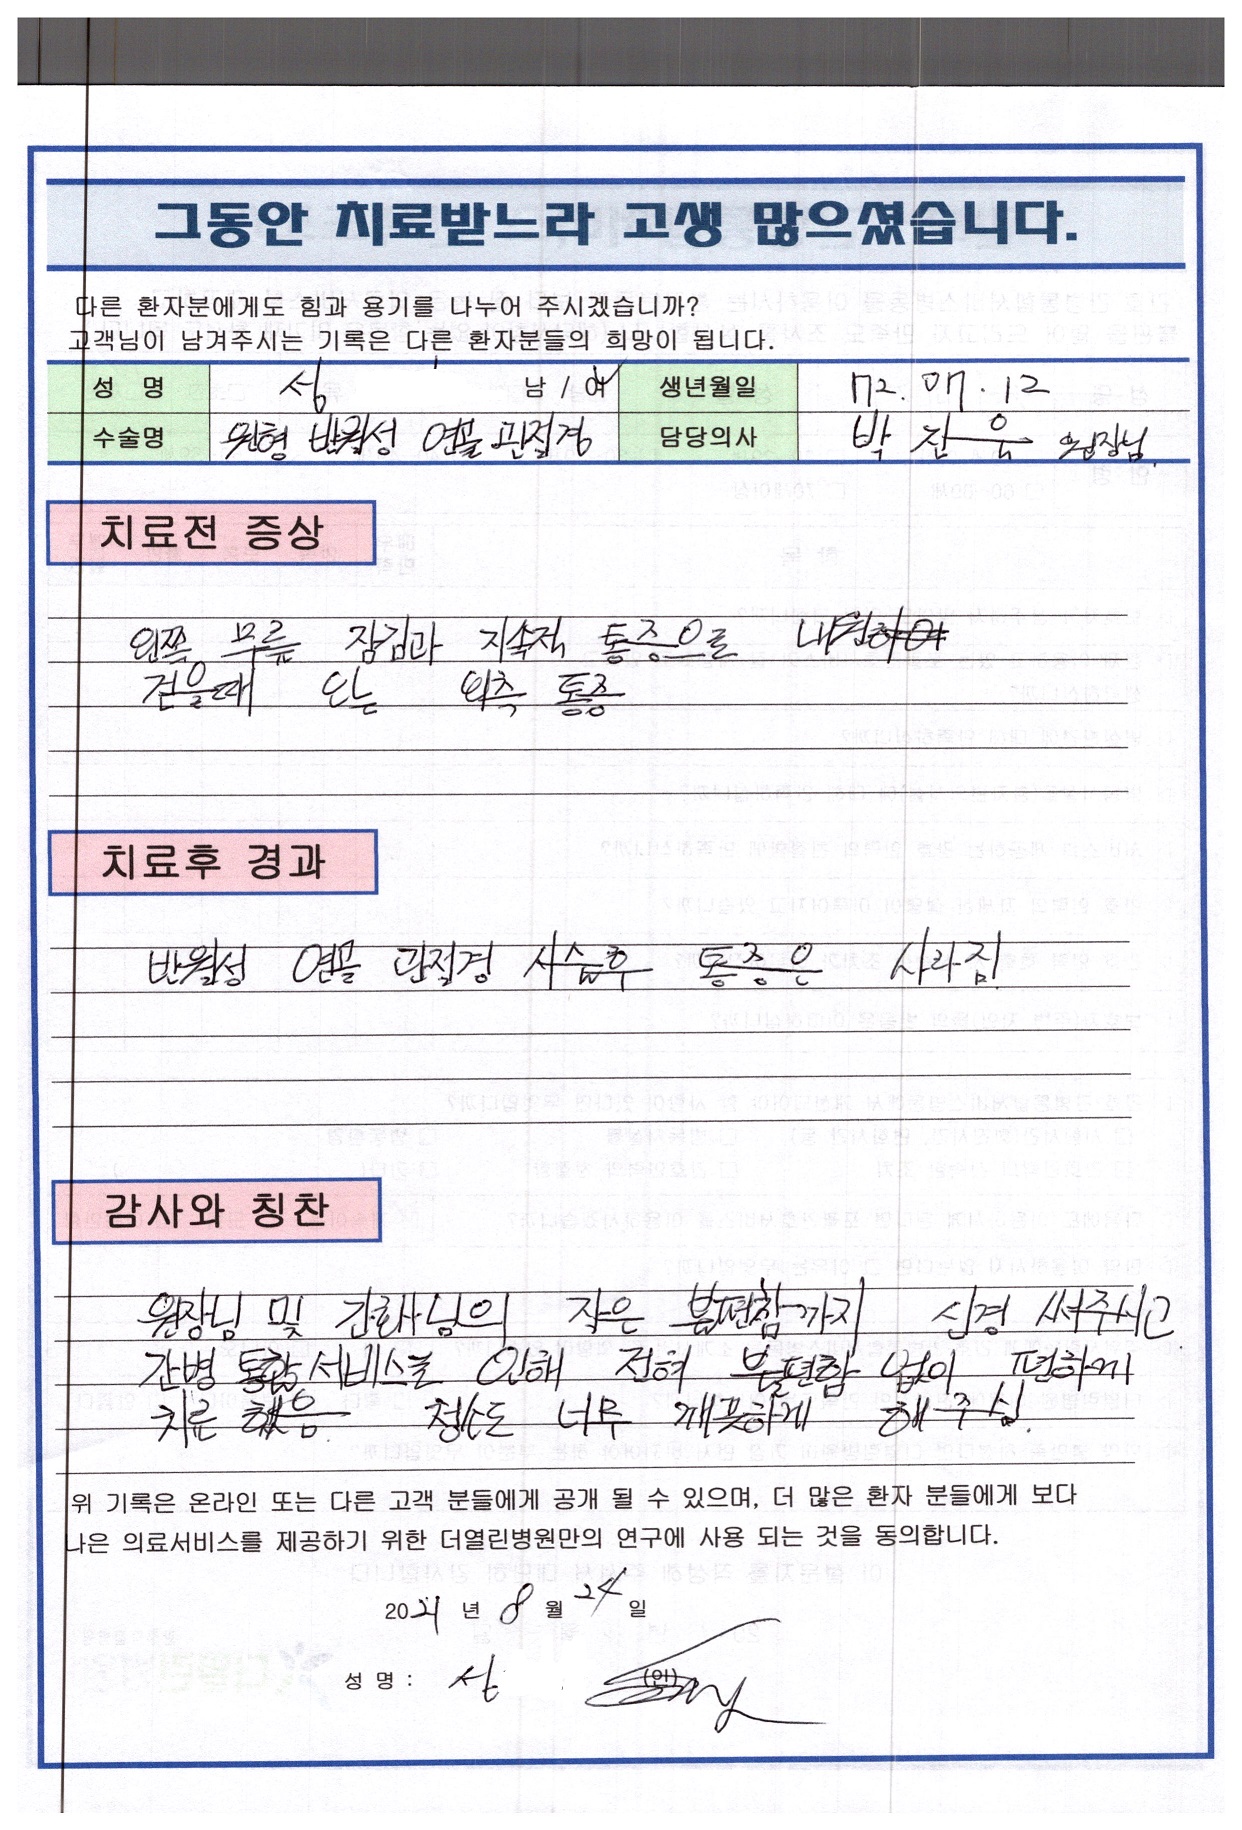 그동안 치료받느라 고생 많으셨습니다.
다른 환자분에게도 힘과 용기를 나누어 주시겠습니까?
고객님이 남겨주시는 기록은 다른 환자분들의 희망이 됩니다.
성 명 남 / 여 생년월일 72. 07. 12
수술명 원형 반월성 연골 관절경 담당의사 박 진 욱 원장님.
치료전 증상
왼쪽 무릎 잠김과 지속적 통증으로 내원하여
걷을때 또는 외측 통증
치료후 경과
반월성 연골 관절경 시술후 통증은 사라짐.
감사와 칭찬
원장님 및 간호사님의 작은 불편함까지 신경 써주시고
간병 통합 서비스로 인해 전혀 불편함 없이 편하게
치료 했음. 청소도 너무 깨끗하게 해 주심.
위 기록은 온라인 또는 다른 고객 분들에게 공개 될 수 있으며, 더 많은 환자 분들에게 보다
나은 의료서비스를 제공하기 위한 더열린병원만의 연구에 사용 되는 것을 동의합니다.
2021 년 8 월 24 일
성 명 : (인)